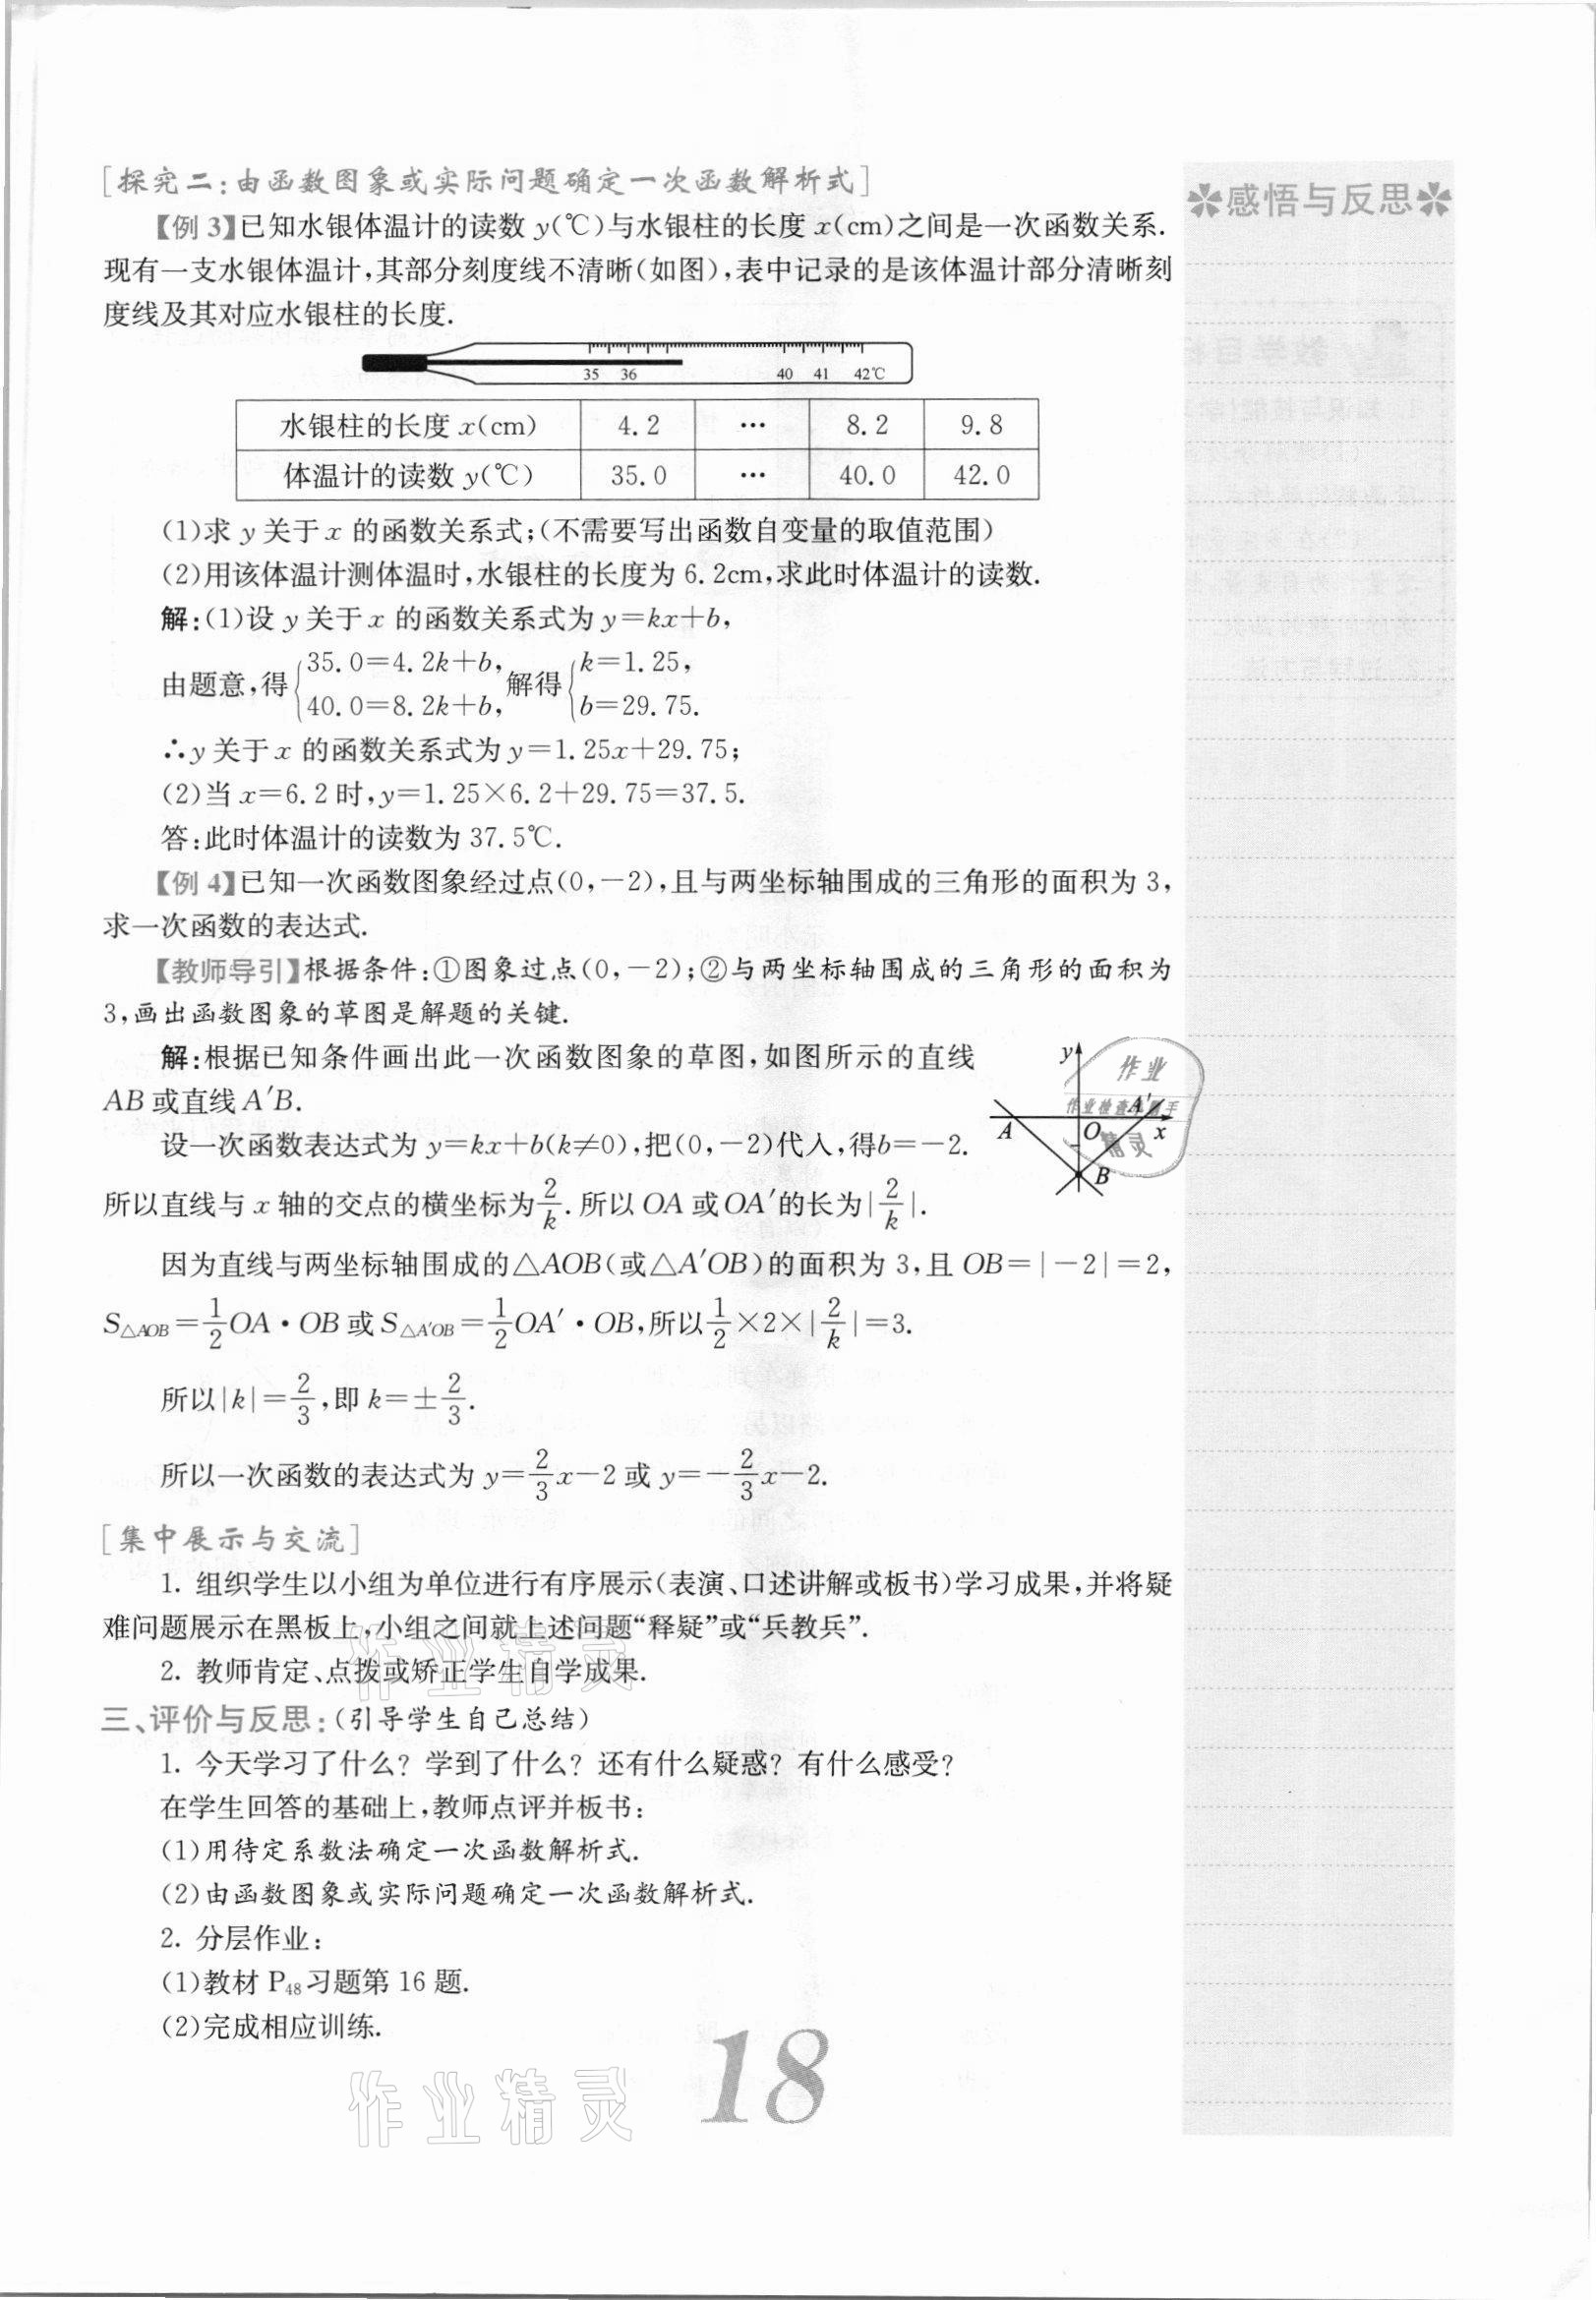 [探究二:由函数图象或实际问题确定一次函数解析式]
✽感悟与反思✽
【例3】已知水银体温计的读数 y(℃)与水银柱的长度 x(cm)之间是一次函数关系.
现有一支水银体温计,其部分刻度线不清晰(如图),表中记录的是该体温计部分清晰刻
度线及其对应水银柱的长度.
35 36 40 41 42℃
水银柱的长度 x(cm) 4.2 … 8.2 9.8
体温计的读数 y(℃) 35.0 … 40.0 42.0
(1)求 y 关于 x 的函数关系式;(不需要写出函数自变量的取值范围)
(2)用该体温计测体温时,水银柱的长度为 6.2cm,求此时体温计的读数.
解:(1)设 y 关于 x 的函数关系式为 y=kx+b,
由题意,得{35.0=4.2k+b, 40.0=8.2k+b, 解得{k=1.25, b=29.75.
∴y 关于 x 的函数关系式为 y=1.25x+29.75;
(2)当 x=6.2 时,y=1.25×6.2+29.75=37.5.
答:此时体温计的读数为 37.5℃.
【例4】已知一次函数图象经过点(0,-2),且与两坐标轴围成的三角形的面积为 3,
求一次函数的表达式.
【教师导引】根据条件:①图象过点(0,-2);②与两坐标轴围成的三角形的面积为
3,画出函数图象的草图是解题的关键.
解:根据已知条件画出此一次函数图象的草图,如图所示的直线
AB 或直线 A′B.
y
A O A′ x
B
作业
作业检查小助手
精灵
设一次函数表达式为 y=kx+b(k≠0),把(0,-2)代入,得b=-2.
所以直线与 x 轴的交点的横坐标为2/k.所以 OA 或 OA′的长为|2/k|.
因为直线与两坐标轴围成的△AOB(或△A′OB)的面积为 3,且 OB=|-2|=2,
S△AOB=1/2OA·OB 或 S△A′OB=1/2OA′·OB,所以1/2×2×|2/k|=3.
所以|k|=2/3,即 k=±2/3.
所以一次函数的表达式为 y=2/3x-2 或 y=-2/3x-2.
[集中展示与交流]
1. 组织学生以小组为单位进行有序展示(表演、口述讲解或板书)学习成果,并将疑
难问题展示在黑板上,小组之间就上述问题“释疑”或“兵教兵”.
2. 教师肯定、点拨或矫正学生自学成果.
作业精灵
三、评价与反思:(引导学生自己总结)
1. 今天学习了什么? 学到了什么? 还有什么疑惑? 有什么感受?
在学生回答的基础上,教师点评并板书:
(1)用待定系数法确定一次函数解析式.
(2)由函数图象或实际问题确定一次函数解析式.
2. 分层作业:
(1)教材 P48习题第 16 题.
(2)完成相应训练.
作业精灵
18